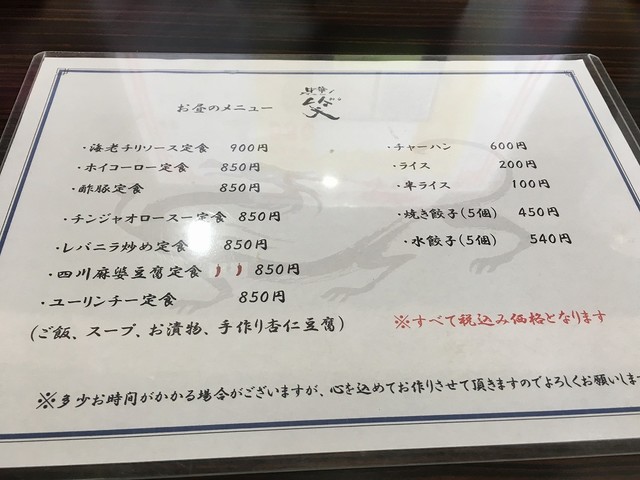 お昼のメニュー
中華
笑
・海老チリソース定食 900円
・ホイコーロー定食 850円
・酢豚定食 850円
・チンジャオロースー定食 850円
・レバニラ炒め定食 850円
・四川麻婆豆腐定食 850円
・ユーリンチー定食 850円
(ご飯、スープ、お漬物、手作り杏仁豆腐)
・チャーハン 600円
・ライス 200円
・半ライス 100円
・焼き餃子(5個) 450円
・水餃子(5個) 540円
※すべて税込み価格となります
※多少お時間がかかる場合がございますが、心を込めてお作りさせて頂きますのでよろしくお願いしま